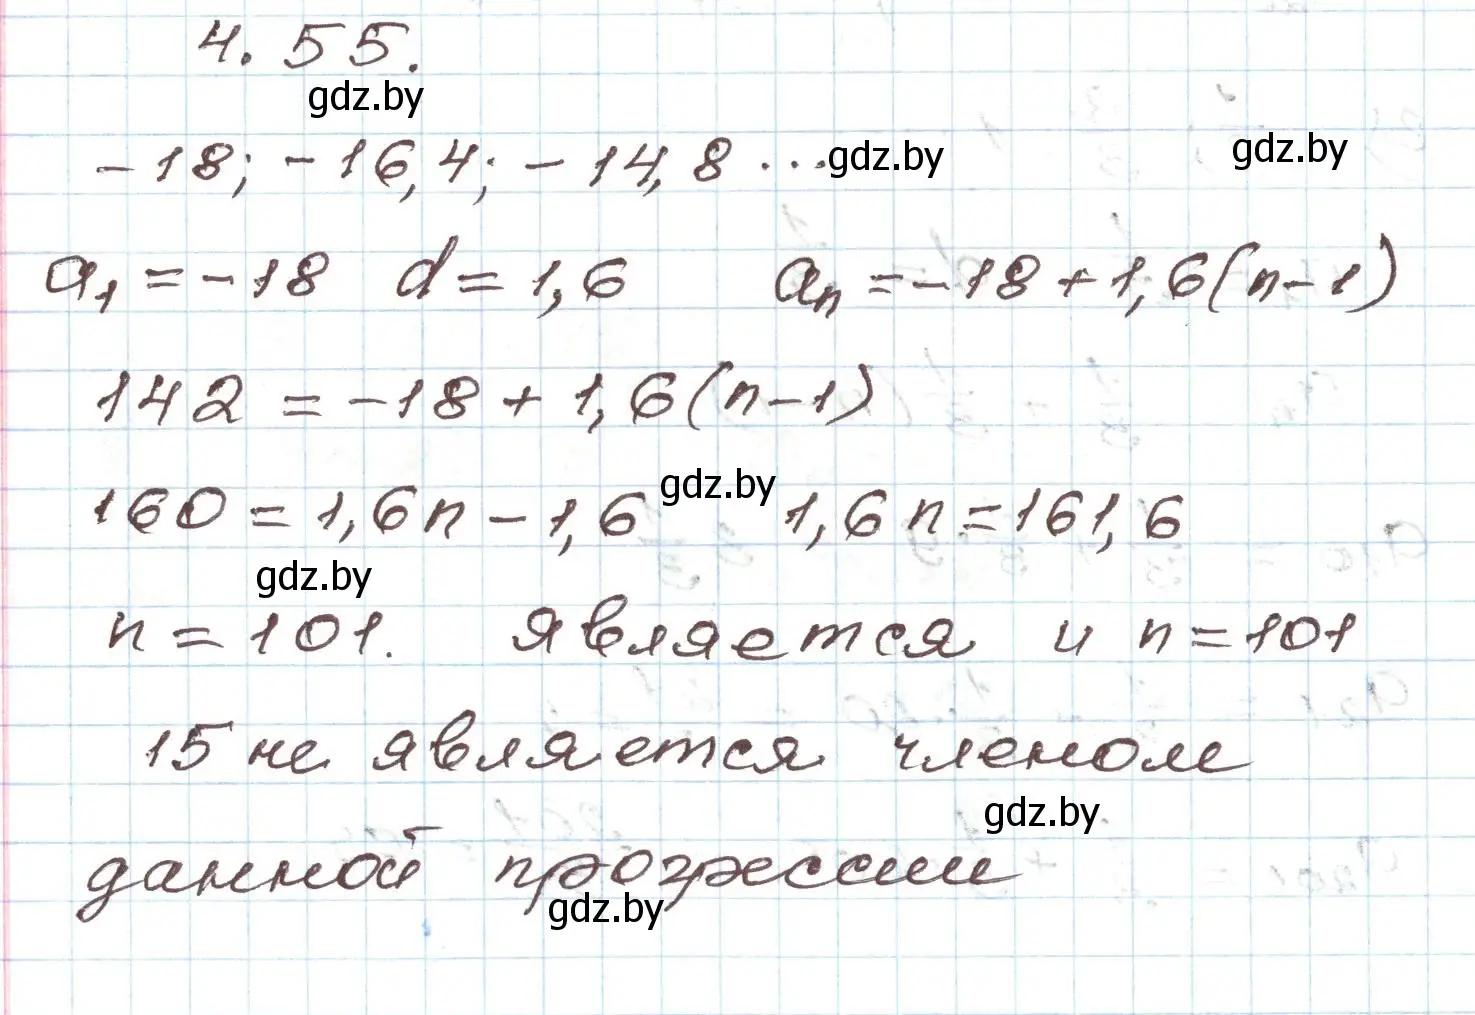 4.55.
gdz.by
-18; -16,4; -14,8 ... gdz.by gdz.by
a₁ = -18 d = 1,6 aₙ = -18 + 1,6(n-1)
142 = -18 + 1,6(n-1)
160 = 1,6n - 1,6 gdz.by 1,6n = 161,6
gdz.by
n = 101. является и n = 101
15 не является членом
gdz.by
данной прогрессии
gdz.by